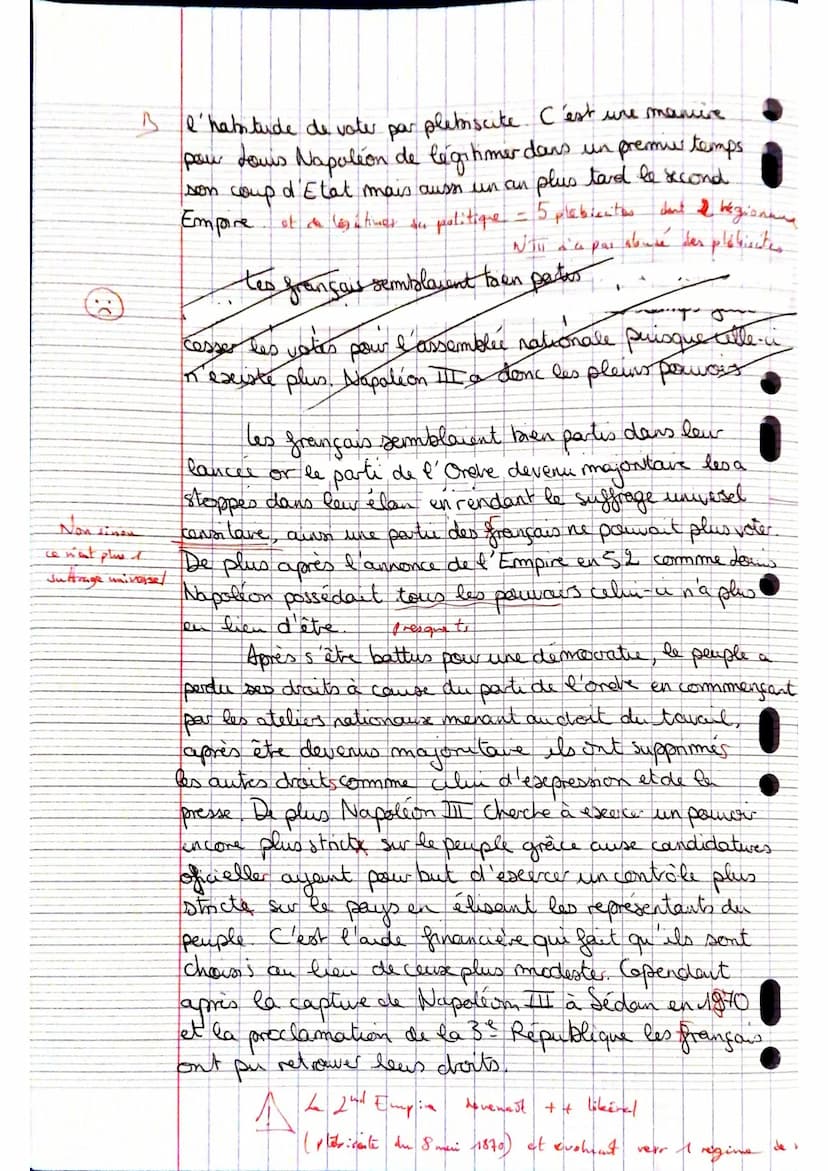 B l'habitude de voter par plebiscite. C'est une manière
pour Louis Napoléon de légitimer dans un premier temps
son coup d'Etat mais aussi un an plus tard le second
Empire. et de légitimer sa politique = 5 plébiscites dont 2
NIII n'a pas abusé des plébiscites
Les français semblaient bien partis
cesser les votes pour l'assemblée nationale puisque celle-ci
n'existe plus. Napoléon III a donc les pleins pouvoirs
Les français semblaient bien partis dans leur
lancée or le parti de l'Ordre devenu majoritaire les a
stoppés dans leur élan en rendant le suffrage universel
Non sinon
censitaire, ainsi une partie des français ne pouvait plus voter.
ce n'est plus 1
De plus après l'annonce de l'Empire en 52 comme Louis
suffrage universel
Napoléon possédait tous les pouvoirs celui-ci n'a plus
eu lieu d'être. presque ts
Après s'être battus pour une démocratie, le peuple a
perdu ses droits à cause du parti de l'ordre en commençant
par les ateliers nationaux menant au droit du travail,
après être devenus majoritaire ils ont supprimés
les autres droits comme celui d'expression et de la
presse. De plus Napoléon III cherche à exercer un pouvoir
encore plus stricte sur le peuple grâce aux candidatures
oficielles ayant pour but d'exercer un contrôle plus
stricte sur le pays en élisant les représentants du
peuple. C'est l'aide financière qui fait qu'ils sont
choisis au lieu de ceux plus modestes. Cependant
après la capture de Napoléon III à Sédan en 1870
et la proclamation de la 3e République les français
ont pu retrouver leurs droits.
Le 2nd Empire devenait ++ libéral
(plébiscite du 8 mai 1870) et évoluait vers 1 régime de